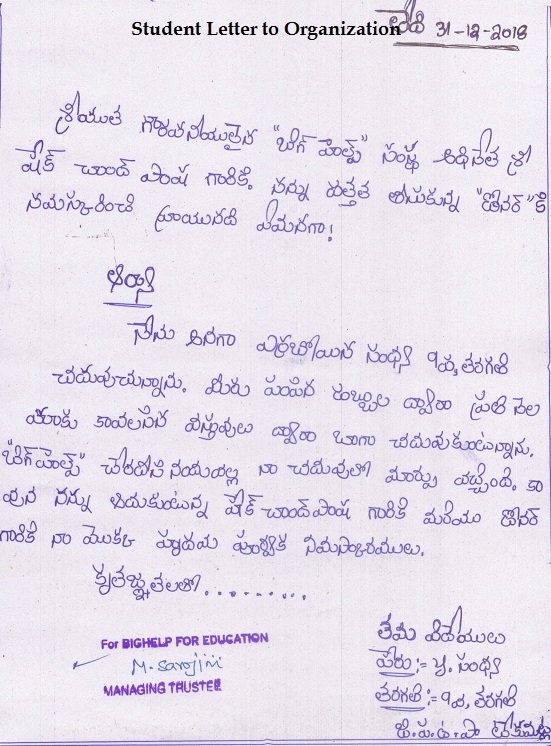 Student Letter to Organization
తేది 31-12-2018
శ్రీయుత గౌరవనీయులైన "బిగ్ హెల్ప్" సంస్థ అధినేత శ్రీ
షేక్ చాంద్ పాషా గారికి, నన్ను దత్తత తీసుకున్న "డోనర్" కి
నమస్కరించి వ్రాయునది ఏమనగా!
ఆర్య
నేను అనగా ఎర్రబోయిన సంధ్య 9వ, తరగతి
చదువుచున్నాను. మీరు పంపిన డబ్బుల ద్వారా ప్రతి నెల
మాకు కావలసిన వస్తువులు ద్వారా బాగా చదువుకుంటున్నాను.
"బిగ్ హెల్ప్" చేరడం నా చదువులో మార్పు వచ్చింది. కా
వున నన్ను ఆదుకుంటున్న షేక్ చాంద్ పాషా గారికి మరియు డోనర్
గారికి నా మొక్క హృదయ పూర్వక నమస్కారములు.
కృతజ్ఞతలతో..........
తమ విదేయులు
పేరు:- y. సంధ్య
తరగతి:- 9వ, తరగతి
జి.ప.ఉ.పా
For BIGHELP FOR EDUCATION
M. Sarojini
MANAGING TRUSTEE